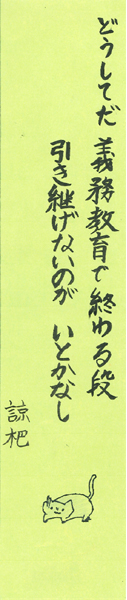 どうしてだ 義務教育で 終わる段
引き継げないのが いとかなし
諒杷